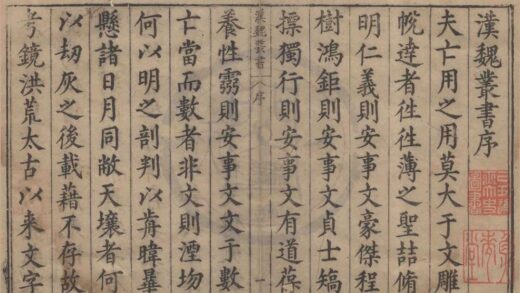 漢魏叢書序
夫亡用之用莫大于文雕
帨達者徃徃薄之聖喆脩
明仁義則安事文豪傑程
樹鴻鉅則安事文貞士稿
摽獨行則安事文有道葆
漢魏叢書 序 一
養性靈則安事文文于數
亡當而數者非文則湮圽
何以明之剖判以歬暐曅
懸諸日月同敝天壤者何
以刼灰之後載藉不存故
考鏡洪荒太古以来文字